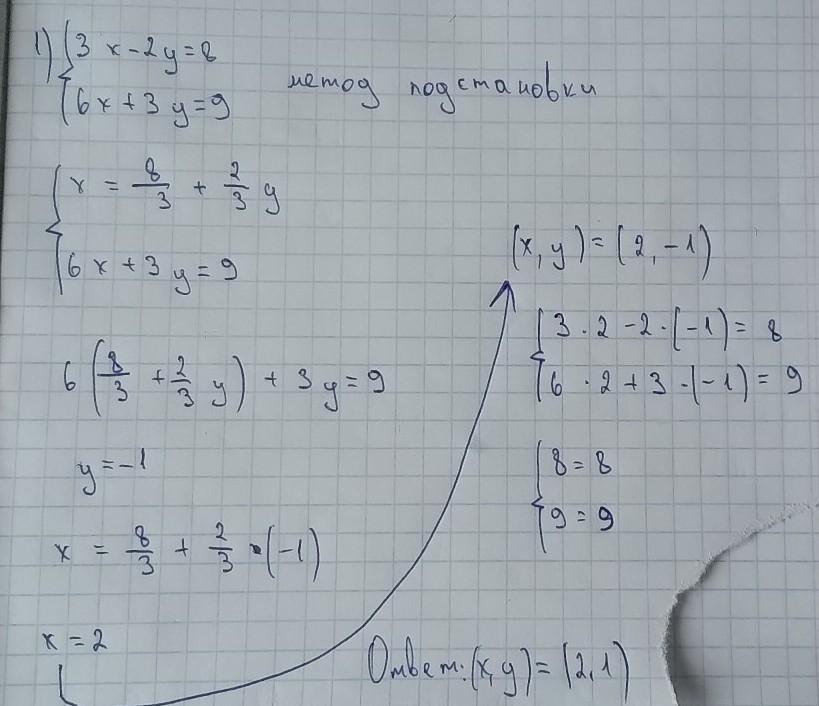 1) {3x-2y=8
{6x+3y=9
метод подстановки
{x = 8/3 + 2/3 y
{6x+3y=9
6(8/3 + 2/3 y) + 3y=9
y=-1
x = 8/3 + 2/3 · (-1)
x = 2
(x, y) = (2, -1)
{3 · 2 - 2 · (-1) = 8
{6 · 2 + 3 · (-1) = 9
{8 = 8
{9 = 9
Ответ: (x, y) = (2, 1)